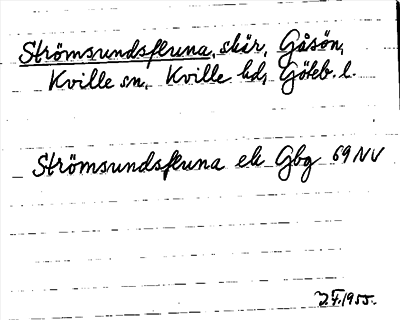 Strömsundsfluna, skär, Gåsön,
Kville sn, Kville hd, Göteb. l.
Strömsundsfluna ek Gbg 69 NV
1955.